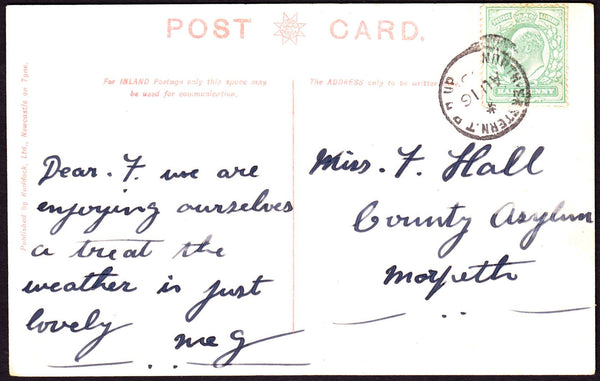 POST CARD.
For INLAND Postage only this space may
be used for communication.
The ADDRESS only to be written
Published by Ruddock, Ltd., Newcastle on Tyne.
Dear. F. we are
enjoying ourselves
a treat the
weather is just
lovely
meg
Miss. F. Hall
County Asylum
Morpeth
NORTH EASTERN. T.P.O UP
AU 16
HALFPENNY